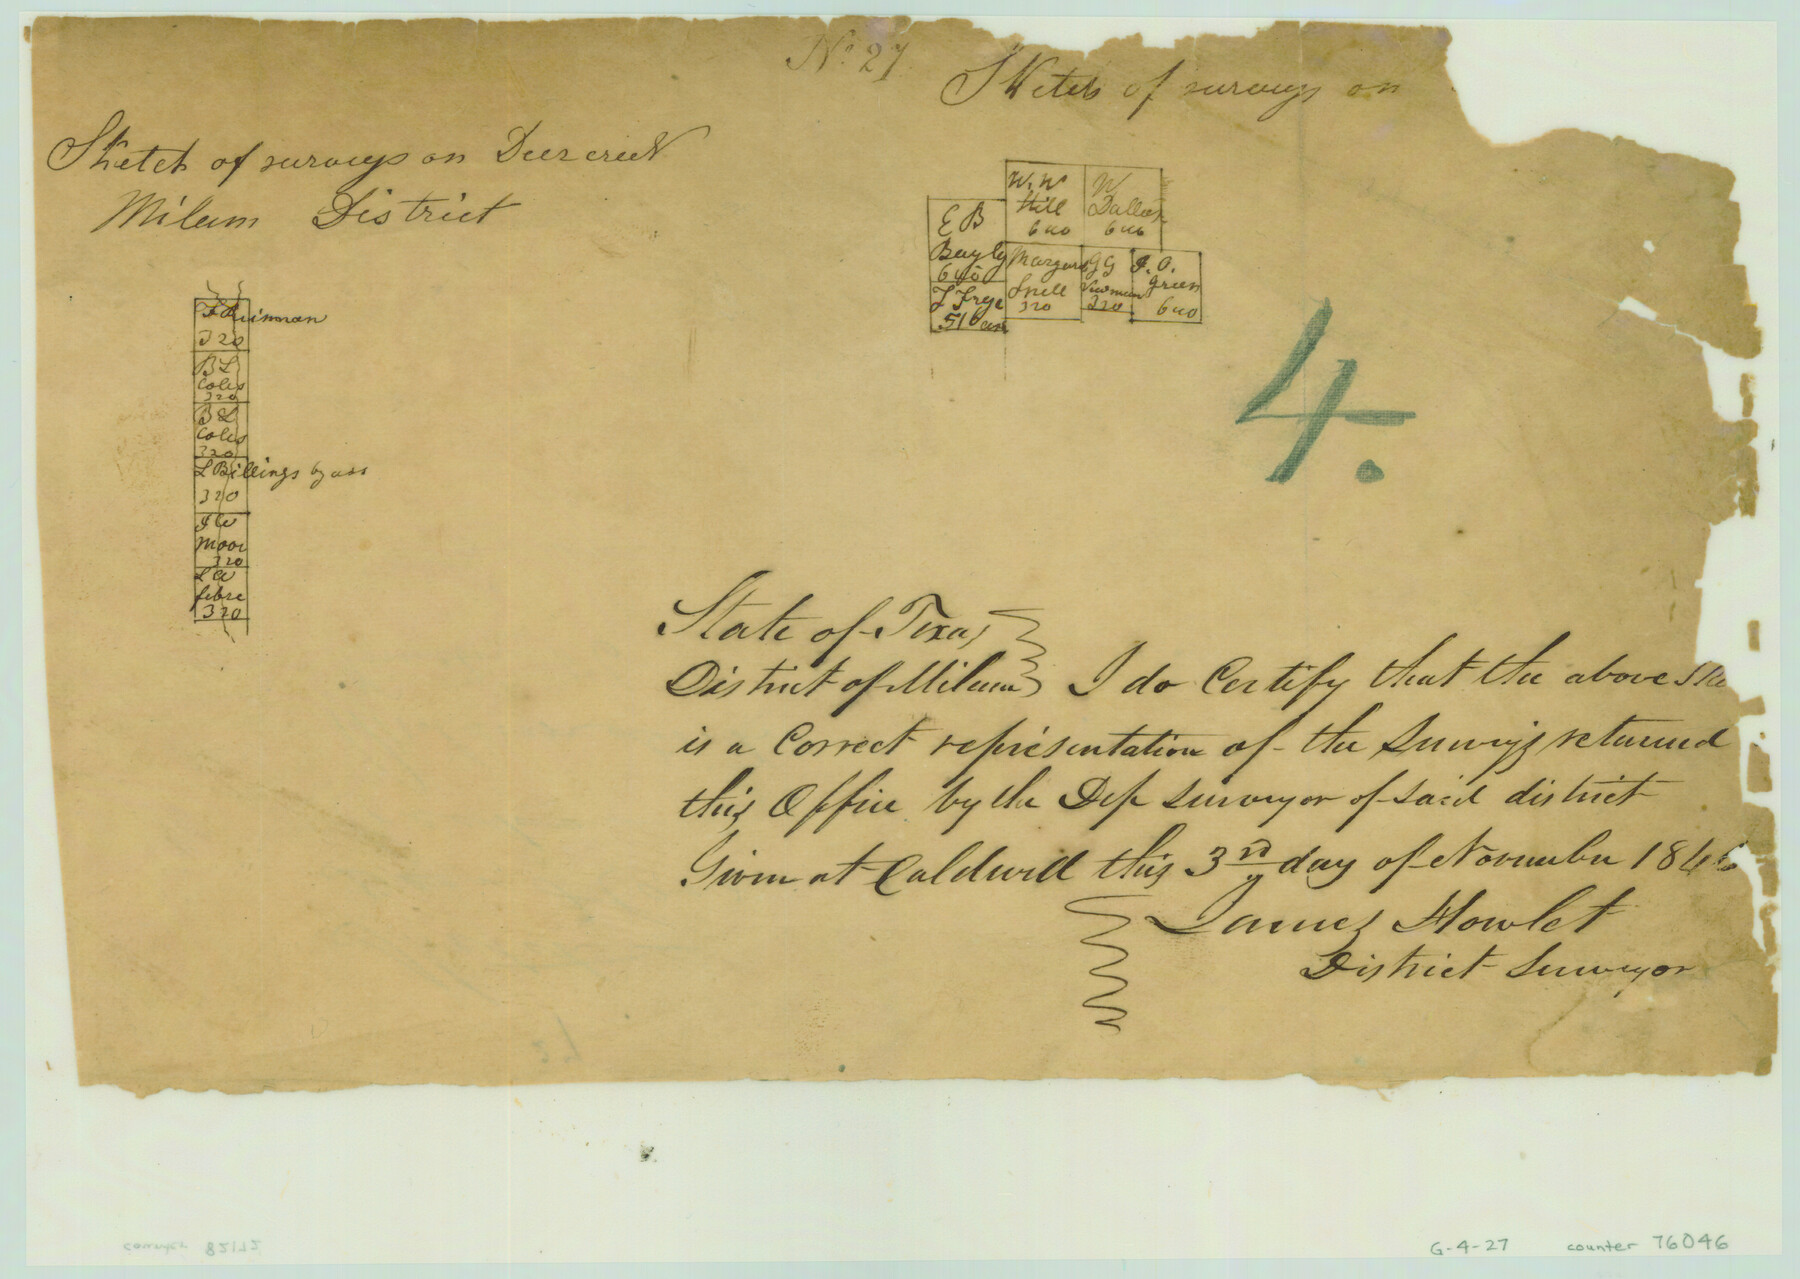 No. 27
Sketch of surveys on
Sketch of surveys on Deer creek
Milam District
W. W
Hill
640
W
Dallas
640
E B
Bayly
640
Margaret
Snell
320
G G
Newman
320
J. O.
Green
640
J Frye
510 acs
4.
320
B L
Coles
320
B L
Coles
320
L Billings by ass
320
J W
Moor
320
L W
320
State of Texas
District of Milam I do Certify that the above Ske
is a Correct representation of the Surveys returned
this Office by the Dep Surveyor of said district
Given at Caldwell this 3rd day of November 1846
James Howlet
District Surveyor
G-4-27
counter 76046